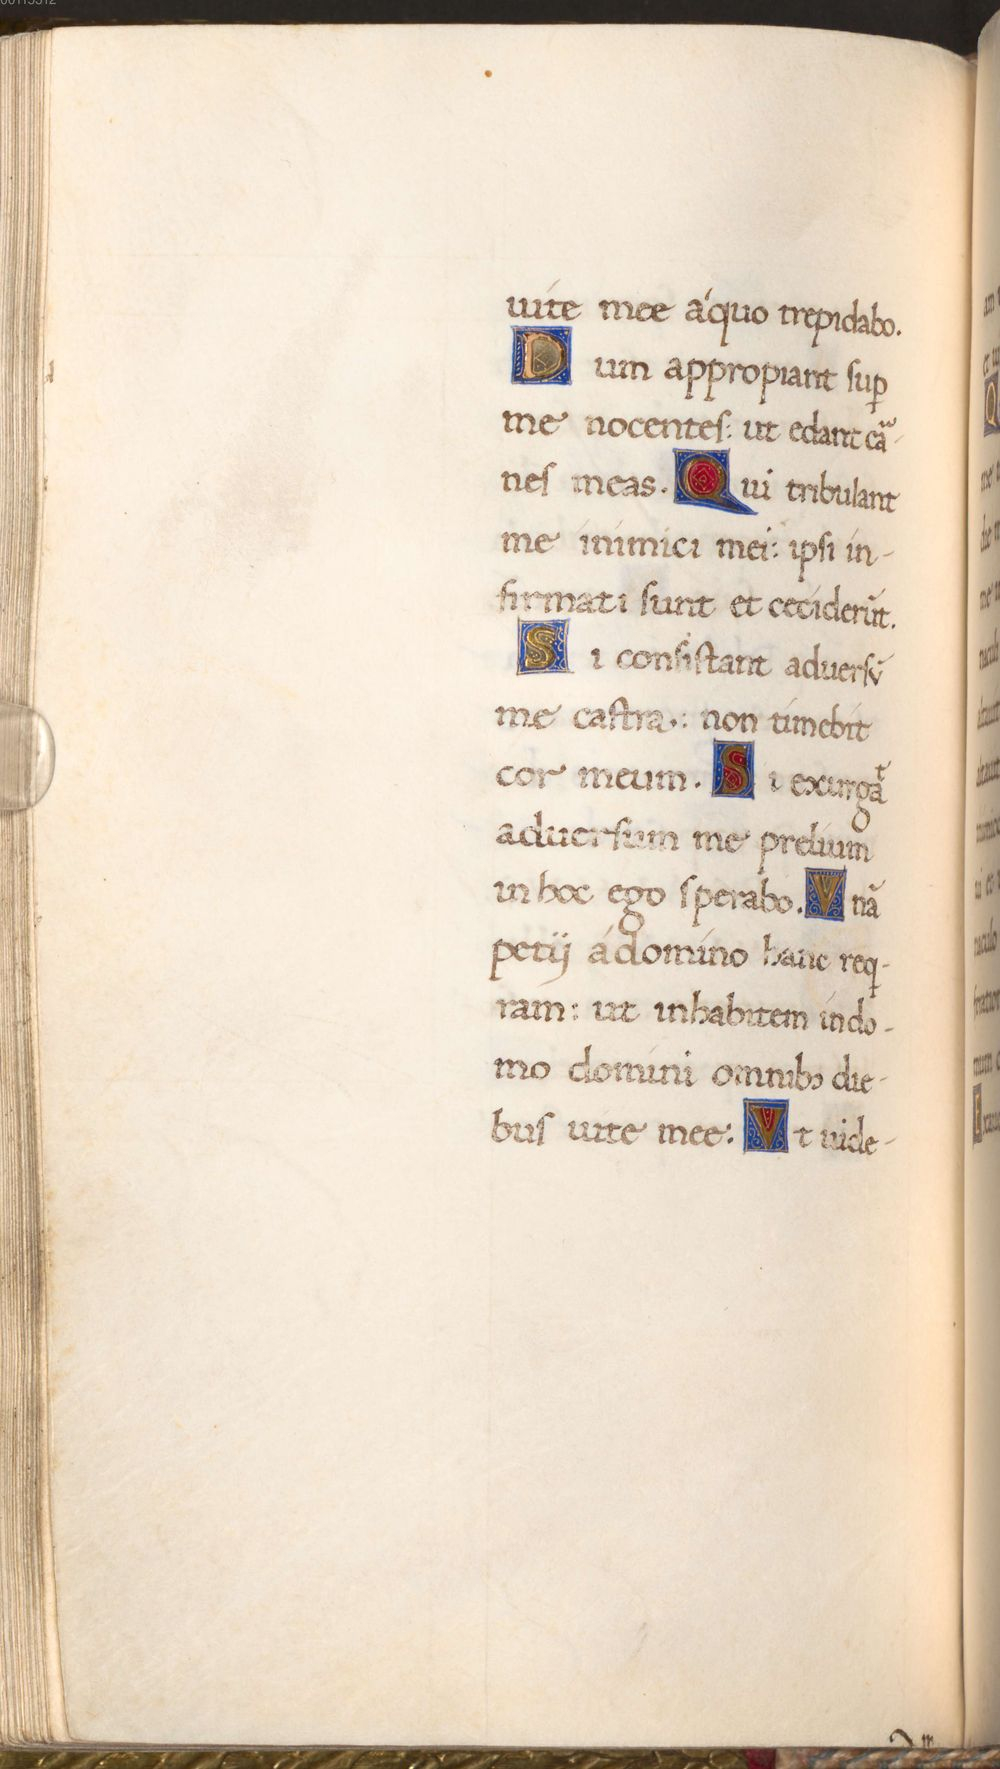 uite mee a quo trepidabo.
Dum appropiant sup̱
me nocentes: ut edant ca͛-
nes meas. Qui tribulant
me inimici mei: ipsi in-
firmati sunt et ceciderūt.
Si consistant aduersū
me castra.: non timebit
cor meum. Si exurgāt
aduersum me prelium
in hoc ego sperabo. Vnā
petij a domino hanc req-
ram: ut inhabitem in do-
mo domini omnibꝫ die-
bus uite mee: Vt uide-